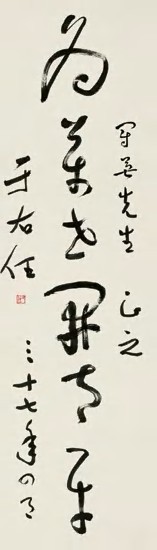 為萬世開太平
守益先生 正之
于右任
三十七年四月